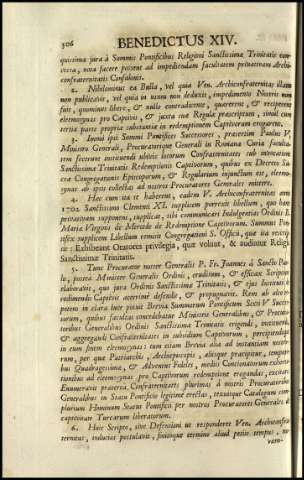 306 BENEDICTUS XIV.
quissima jura à Summis Pontificibus Religioni Sanctissimæ Trinitatis con-
cessa, nova facere posset ad impediendam facultatem privativam Archi-
confraternitatis Confalonis.
2. Nihilominus ea Bulla, vel quia Ven. Archiconfraternitas illam
non publicavit, vel quia in usum non deduxit, impedimento Nostris non
fuit, quominus libere, & nullo contradicente, quærerent, & reciperent
eleemosynas pro Captivis, & juxta suæ Regulæ præscriptum, simul cum
tertia parte propriæ substantiæ in redemptionem Captivorum erogarent.
3. Immò ipsi Summi Pontifices Successores, præsertim Paulus V,
Ministro Generali, Procuratorique Generali in Romana Curia faculta-
tem fecerunt instituendi ubivis locorum Confraternitates sub invocatione
Sanctissimæ Trinitatis Redemptionis Captivorum, quibus ex Decreto Sa-
cræ Congregationis Episcoporum, & Regularium injunctum est, eleemo-
synas ab ipsis collectas ad nostros Procuratores Generales mittere.
4. Hæc cum ita se haberent, eadem V. Archiconfraternitas anno
1702 Sanctissimo Clementi XI. supplicem porrexit libellum, quo hanc
privativam supponens, supplicat, sibi communicari Indulgentias Ordinis B.
Mariæ Virginis de Mercede de Redemptione Captivorum. Summus Pon-
tifex supplicem libellum remisit Congregationi S. Officii, quæ ita rescrip-
sit: Exhibeant Oratores privilegia, quæ volunt, & audiatur Religio
Sanctissimæ Trinitatis.
5. Tunc Procurator noster Generalis P. Fr. Joannes à Sancto Pau-
lo, posteà Minister Generalis Ordinis, eruditum, & efficax Scriptum
elaboravit, quo jura Ordinis Sanctissimæ Trinitatis, & ejus Instituti
redimendi Captivos acerrimè defendit, & propugnavit. Rem ab alto re-
petens in clara luce posuit Brevia Summorum Pontificum Sæculi V Succes-
sorum, quibus facultas concedebatur Ministris Generalibus, & Procura-
toribus Generalibus Ordinis Sanctissimæ Trinitatis erigendi, instituendi,
& aggregandi Confraternitates in subsidium Captivorum, percipiendique
in eum finem eleemosynas; tum etiam Brevia alia ad instantiam nostro-
rum, per quæ Patriarchis, Archiepiscopis, aliisque præcipitur, tempori-
bus Quadragesimæ, & Adventus Fideles, mediis Concionatorum exhorta-
tionibus ad eleemosynas pro Captivorum redemptione erogandas, excitari.
Enumeratis præterea Confraternitatibus plurimis à nostris Procuratoribus
Generalibus in Statu Pontificio legitimè erectis, texuitque Catalogum com-
plurium Hominum Status Pontificii per nostros Procuratores Generales è
captivitate Turcarum liberatorum.
6. Huic Scripto, sive Defensioni ut responderet Ven. Archiconfra-
ternitas, inducias postulavit, semisque termino aliud petiit tempus, no-
varo-